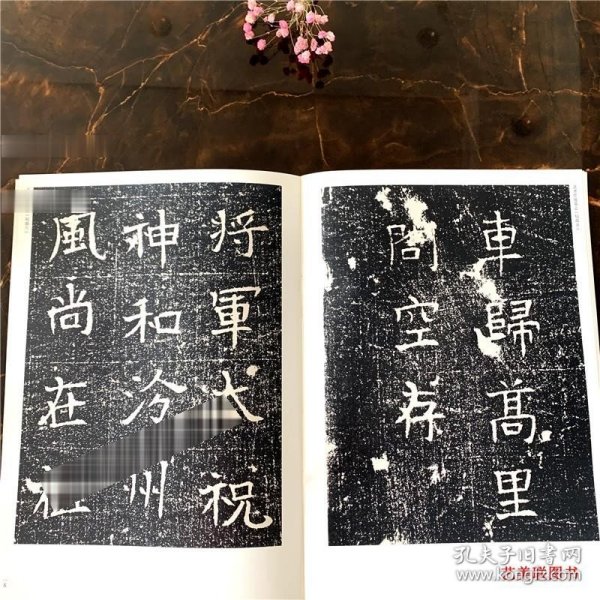 車歸髙里
問空存
将軍祝
神和汾州
風尚在
孔夫子旧书网
艺美联图书